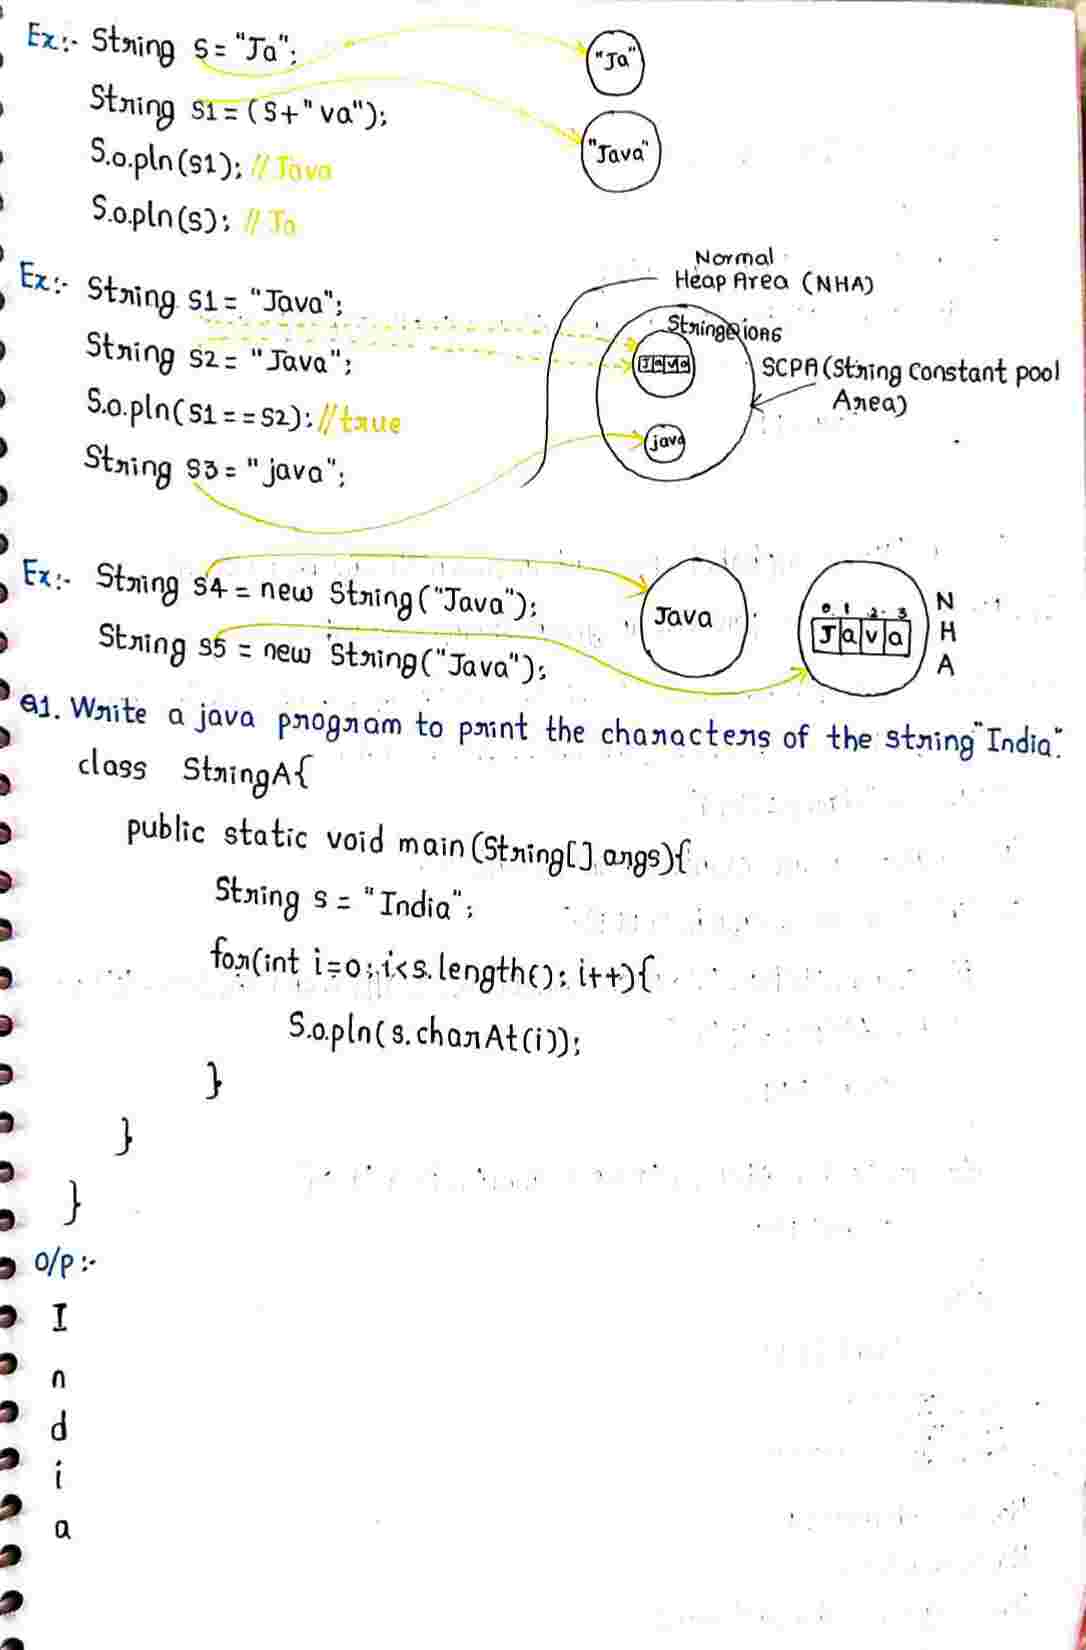 Ex:- String s = "Ja";
"Ja"
String s1 = (s+"va");
"Java"
S.o.pln(s1); // Java
S.o.pln(s); // Ja
Normal
Heap Area (NHA)
Ex:- String s1 = "Java";
String s2 = "Java";
Java
SCPA (String Constant pool
Area)
S.o.pln(s1==s2); //true
java
String s3 = "java";
Ex:- String s4 = new String("Java");
Java
0 1 2 3
J a v a
N
H
A
String s5 = new String("Java");
Q1. Write a java program to print the characters of the string "India".
class StringA{
public static void main(String[] args){
String s = "India";
for(int i=0; i<s.length(); i++){
S.o.pln(s.charAt(i));
}
}
}
O/P:-
I
n
d
i
a